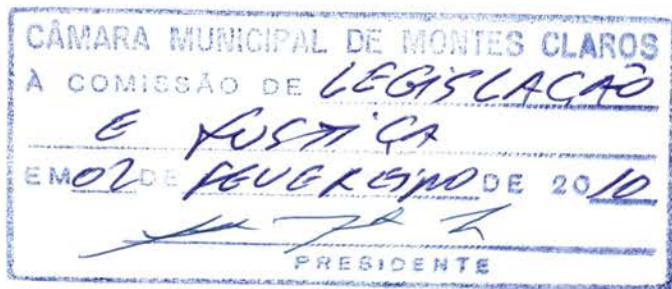 CÂMARA MUNICIPAL DE MONTES CLAROS
À COMISSÃO DE LEGISLAÇÃO
E JUSTIÇA
EM 02 DE FEVEREIRO DE 2010
PRESIDENTE